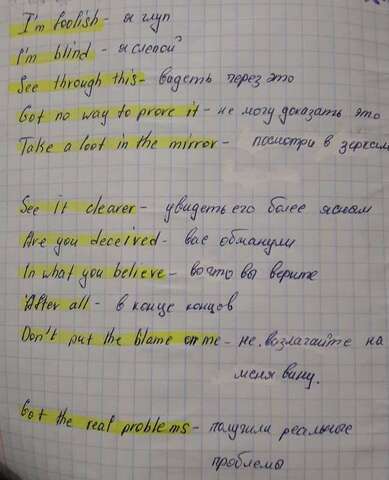 I'm foolish - я глуп
I'm blind - я слепой
See through this - видеть через это
Got no way to prove it - не могу доказать это
Take a loot in the mirror - посмотри в зеркало
See it clearer - увидеть его более ясным
Are you deceived - вас обманули
In what you believe - во что вы верите
After all - в конце концов
Don't put the blame on me - не возлагайте на
меня вину.
Got the real problems - получили реальные
проблемы